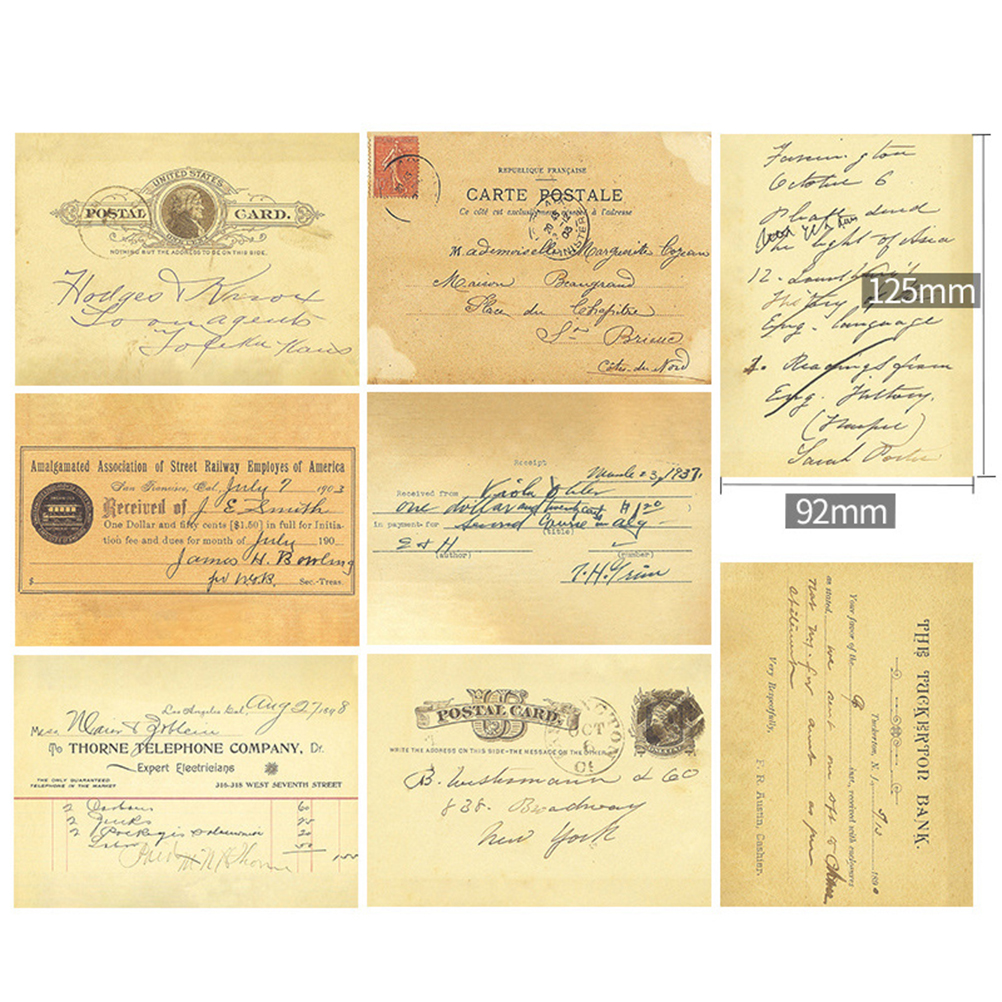 UNITED STATES
POSTAL CARD.
NOTHING BUT THE ADDRESS TO BE ON THIS SIDE.
Hodges & Knox
Loan agents
Topeka Kans
REPUBLIQUE FRANÇAISE
CARTE POSTALE
Ce côté est exclusivement réservé à l'adresse
Mademoiselle Marguerite
Maison Beaugrand
Place du Chapitre
St Brieuc
Côtes-du-Nord
Farmington
October 6
Please send
the Light of Asia
12 -
History
Eng. language
Readings from
Eng. History.
(Harper)
Sarah Porter
125mm
92mm
Amalgamated Association of Street Railway Employes of America
San Francisco, Cal. July 7 1903
Received of J. E. Smith
One Dollar and fifty cents [$1.50] in full for Initia-
tion fee and dues for month of July 190
James H. Bowling
$ Sec.-Treas.
Receipt
March 23, 1937
Received from Viola
one dollar and twenty cents
in payment for second course in alg
(title)
E & H
(author) (number)
THE TUCKERTON BANK.
Tuckerton, N. J., 9/13 1890
Your favor of the 9 inst., received with enclosures
as stated. we
not my for amt as per
Very Respectfully,
F. R. Austin, Cashier.
Los Angeles Cal, Aug 27 1898
Mess
To THORNE TELEPHONE COMPANY, Dr.
Expert Electricians
THE ONLY GUARANTEED
TELEPHONE IN THE MARKET
316-318 WEST SEVENTH STREET
2 60
2 25
2 20
Labor 50
US
POSTAL CARD.
WRITE THE ADDRESS ON THIS SIDE-THE MESSAGE ON THE OTHER
OCT
6
B. Westermann & Co
838. Broadway
New York